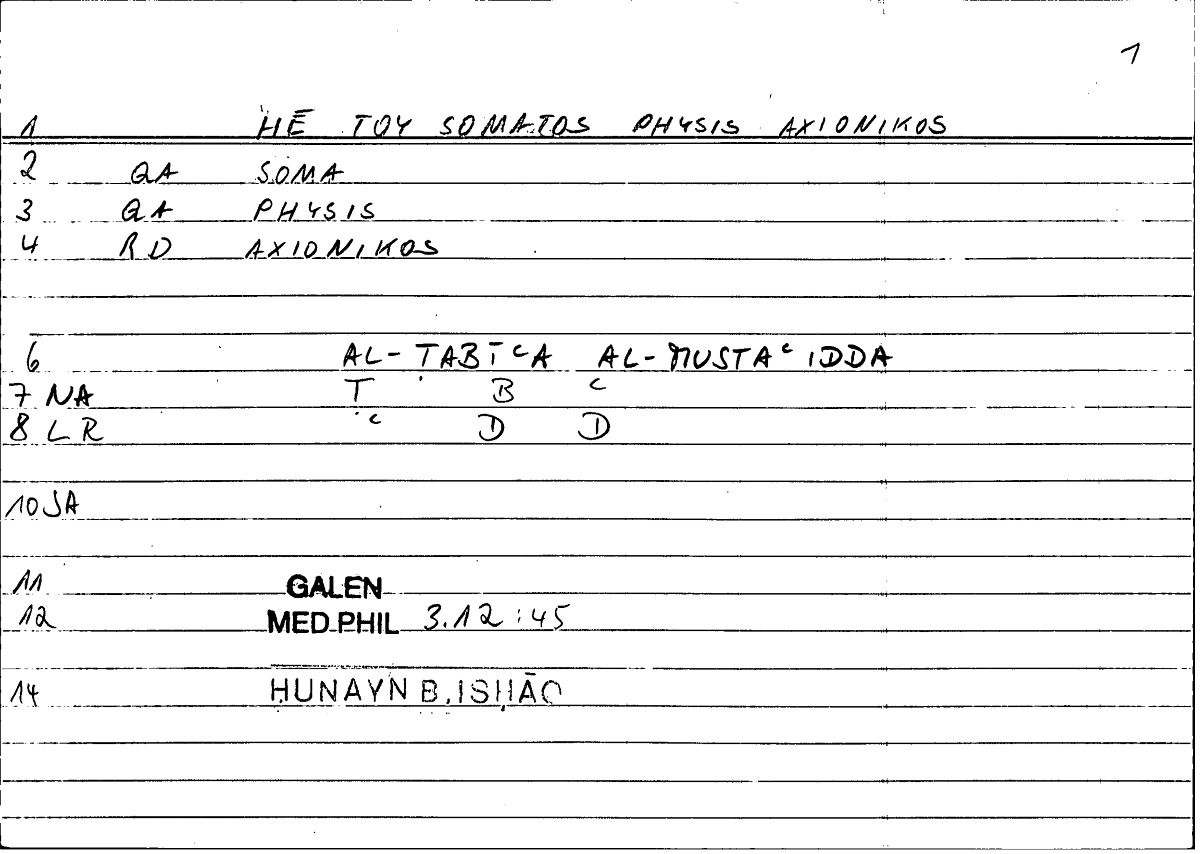 1
1 HĒ TOY SOMATOS PHYSIS AXIONIKOS
2 QA SOMA
3 QA PHYSIS
4 RD AXIONIKOS
6 AL-ṬABĪᶜA AL-MUSTAᶜIDDA
7 NA Ṭ B ᶜ
8 LR ᶜ D D
10 JA
11 GALEN
12 MED.PHIL 3.12:45
14 ḤUNAYN B. ISḤĀQ